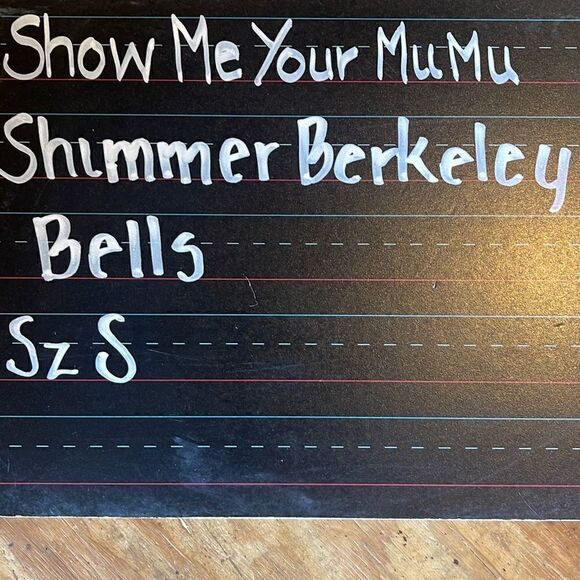 Show Me Your MuMu
Shimmer Berkeley
Bells
Sz S